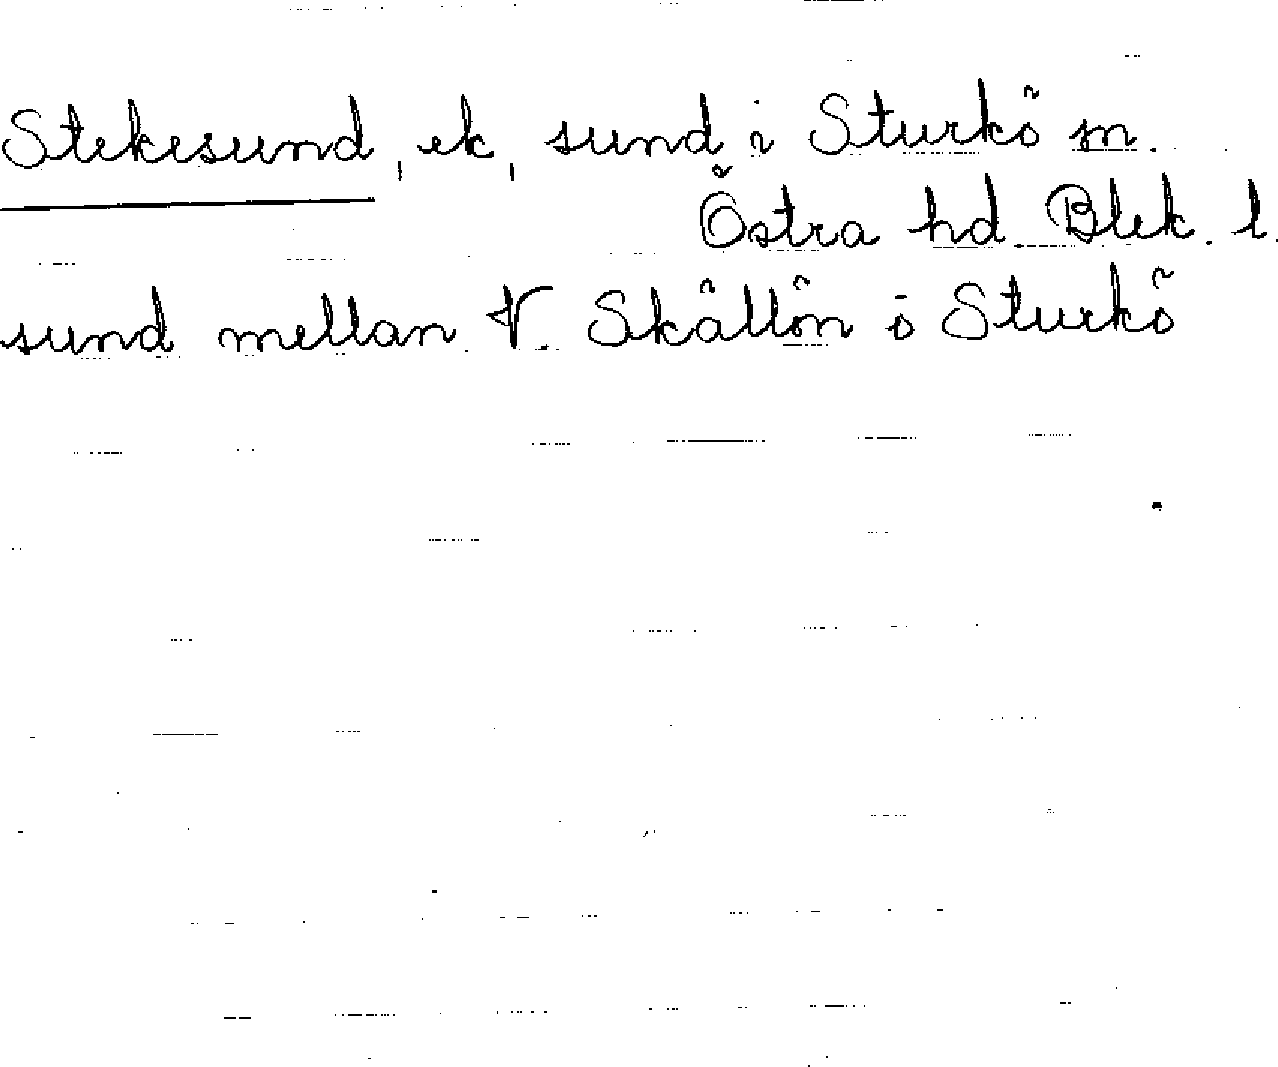 Stekesund, ek, sund i Sturkö sn.
Östra hd. Blek. l.
sund mellan V. Skällön o Sturkö